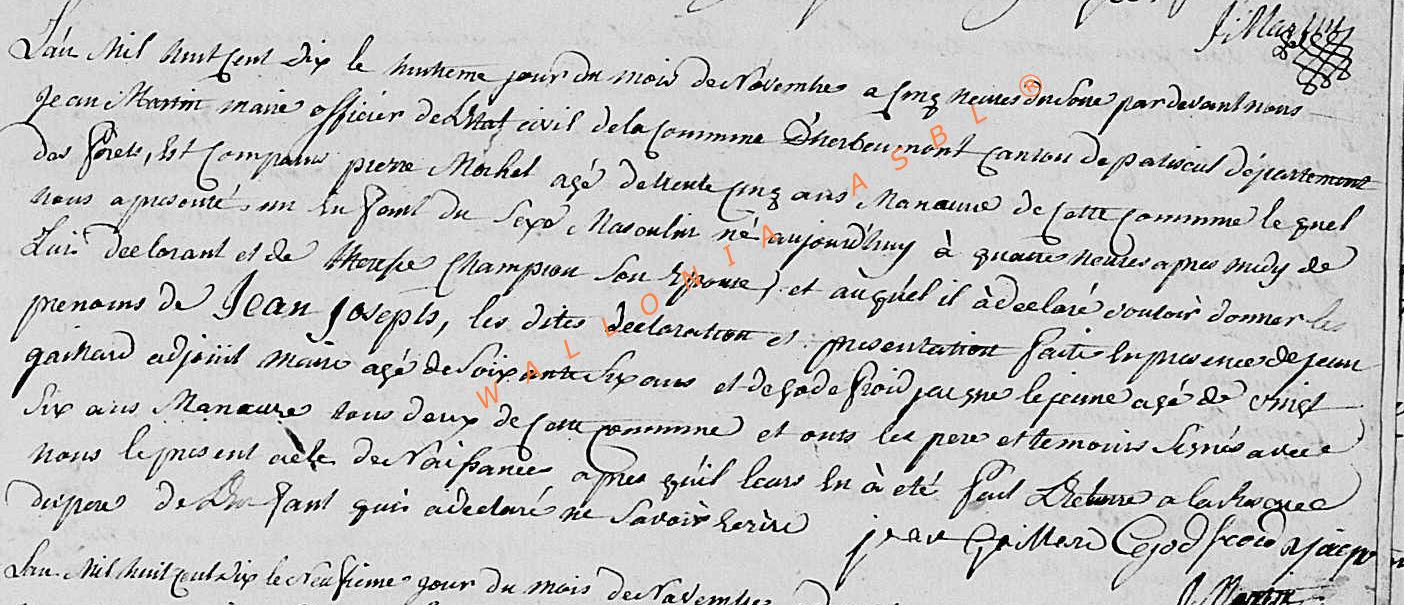 J. Martin
L'an Mil huit Cent Dix le huitieme jour du mois de Novembre a Cinq heures du Soire pardevant nous
Jean Martin maire officier de L'Etat civil de la Commune D'herbeumont Canton de paliseul département
des forets, Est Comparus pierre Michel agé de trente Cinq ans Manœuvre de Cette Commune le quel
nous a presenté un Enfant du Sexe Masculin né aujourd'huy à quatre heures apres midy de
Lui declarant et de therese Champion Son Epouse, et auquel il à declaré vouloir donner les
prenoms de Jean Joseph, les dites declaration et presentation faite En presence de jean
gaillard adjoint maire agé de Soixante Six ans et de godefroid jacque le jeune agé de vingt
Six ans Manœuvre tous deux de Cette Commune et onts les pere et temoins Signés avec
nous le present acte de Naissance apres qu'il leurs En à été fait Lecture a la
du pere de L'Enfant qui à declaré ne Savoir Ecrire jean Gaillard Godfroid Jacq
L'an Mil huit Cent dix le Neufieme jour du mois de Novembre
J. Martin
WALLONIA ASBL ®